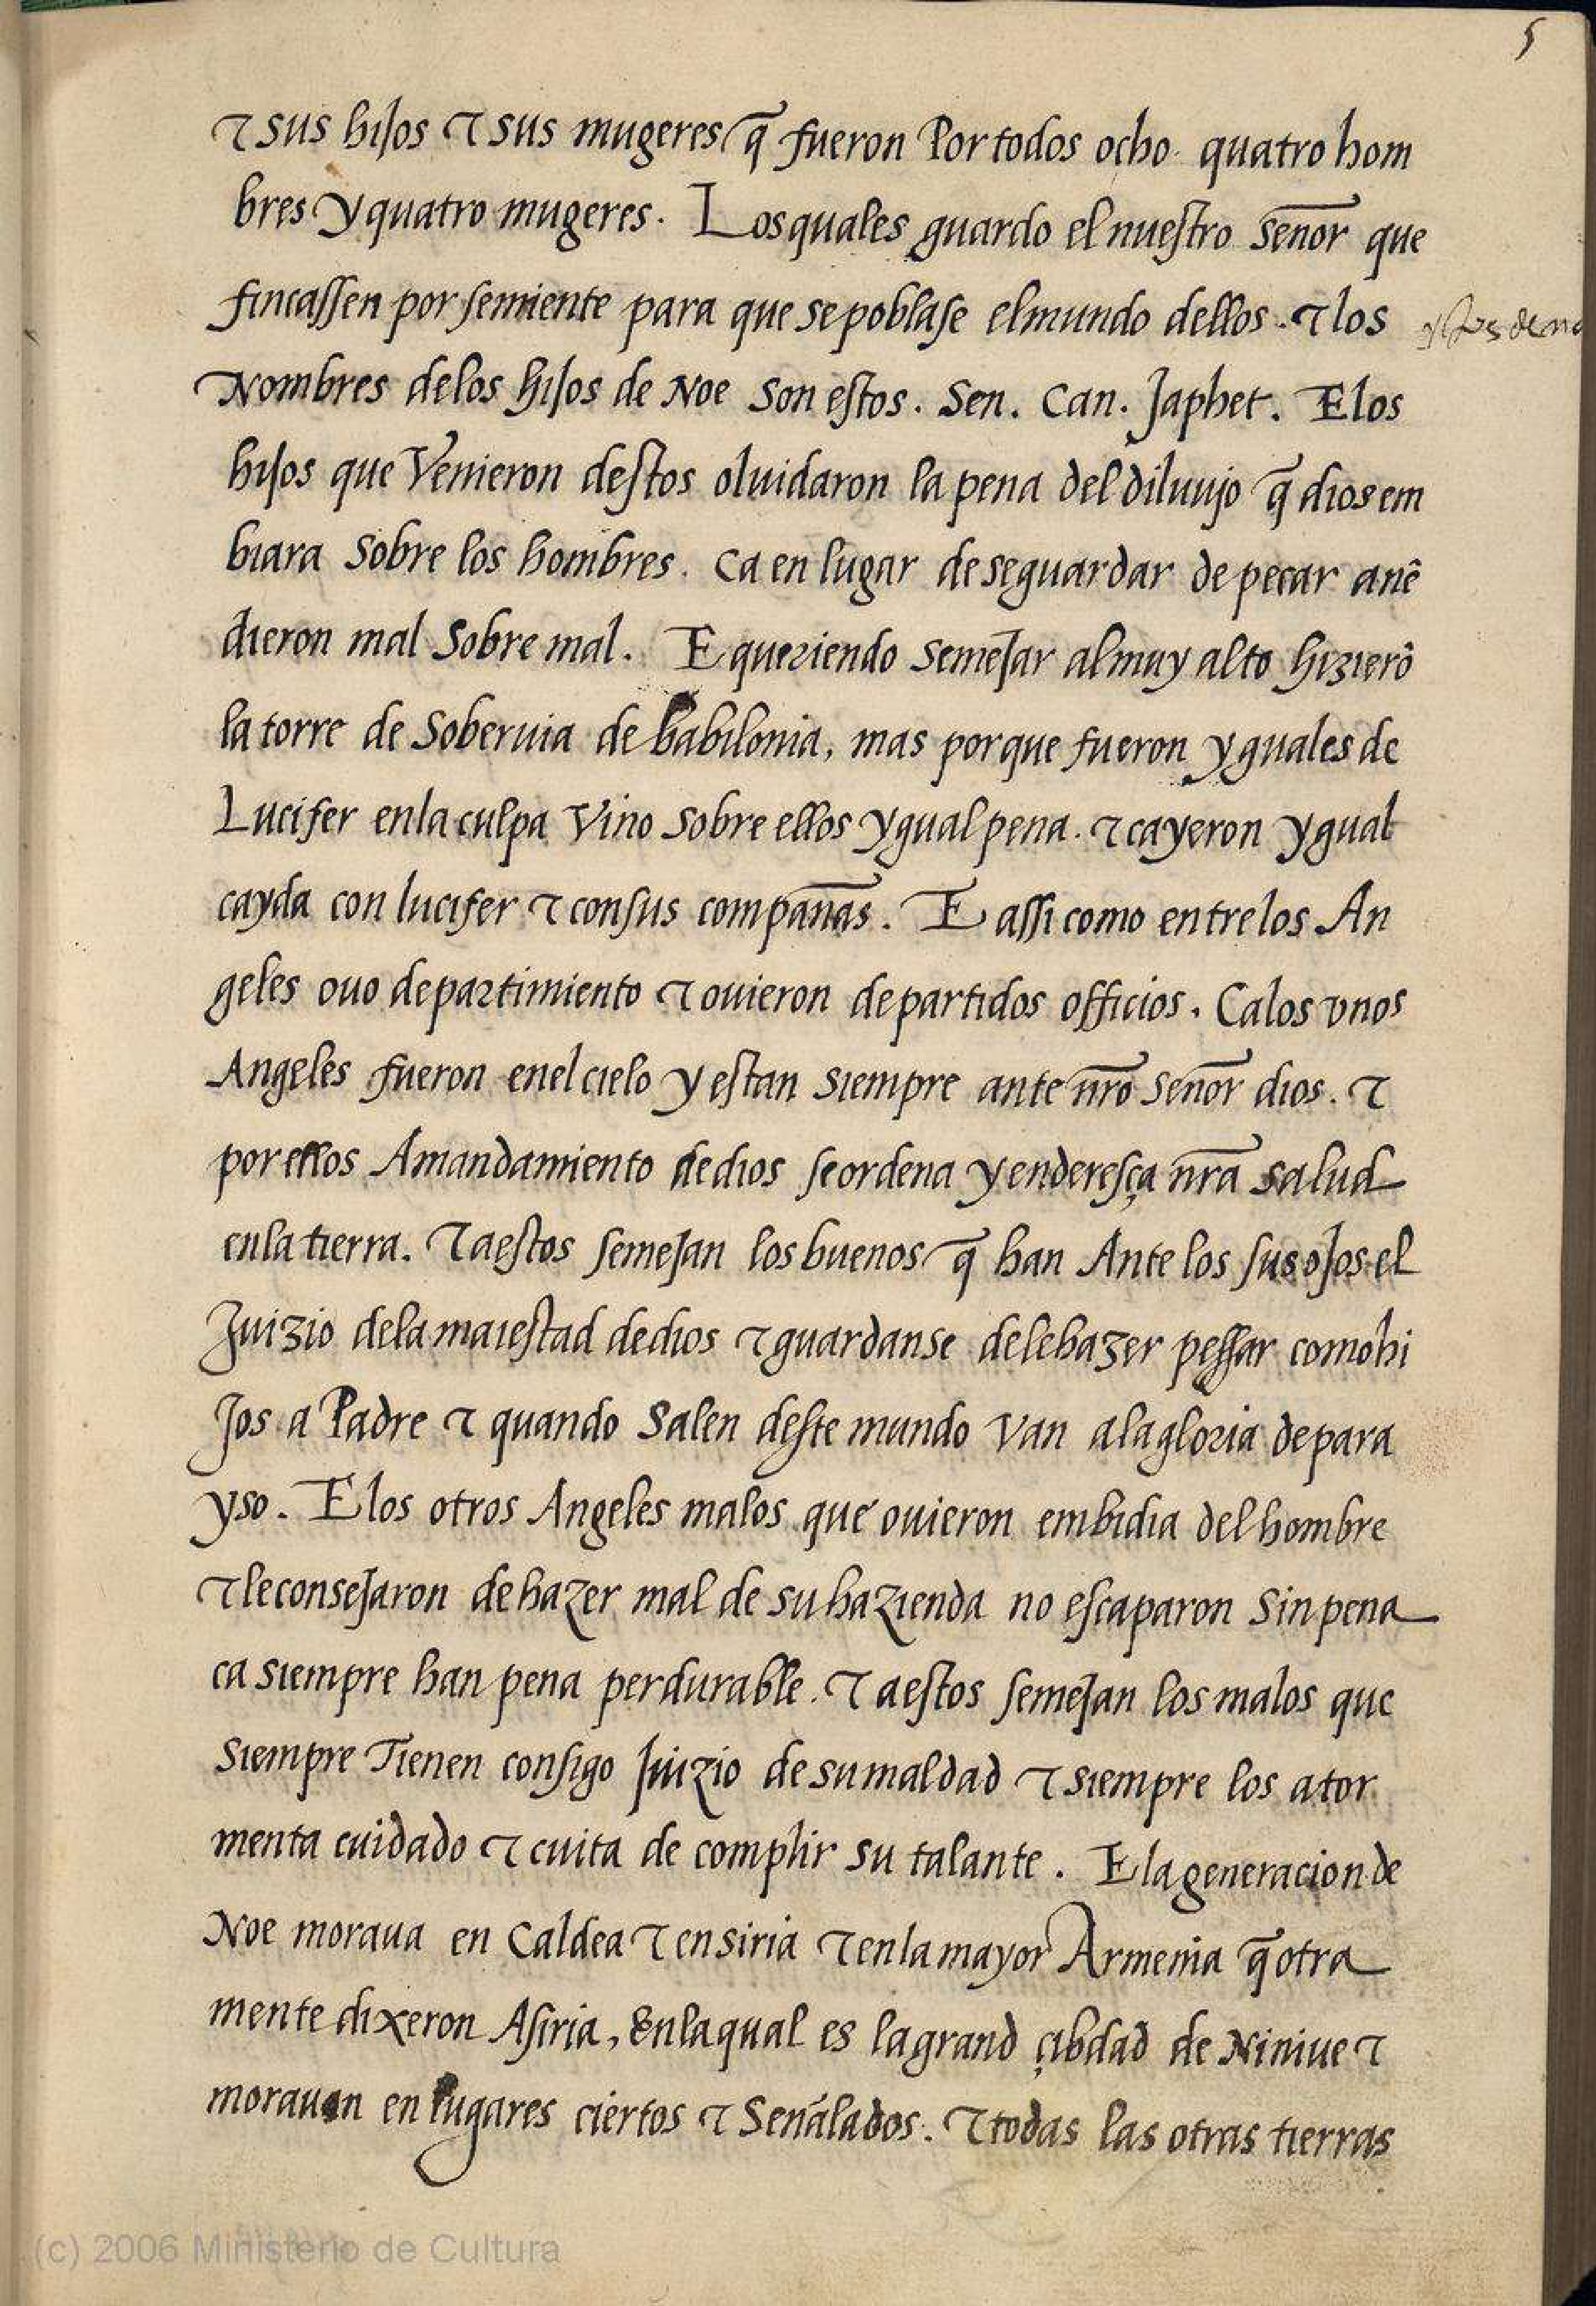 5
⁊ sus hijos ⁊ sus mugeres q̃ fueron Por todos ocho. quatro hom
bres y quatro mugeres. Los quales guardo el nuestro señor que
fincassen por semiente para que se poblase el mundo dellos. ⁊ los
Nombres delos hijos de Noe son estos. Sen. Can. Japhet. E los
hijos que Venieron destos oluidaron la pena del diluujo q̃ dios em
biara sobre los hombres. Ca en lugar de se guardar de pecar anẽ
dieron mal sobre mal. E queriendo semejar al muy alto hizierõ
la torre de Soberuia de babilonia, mas porque fueron yguales de
Lucifer enla culpa Vino sobre ellos ygual pena. ⁊ cayeron ygual
cayda con lucifer ⁊ con sus compañas. E assi como entre los An
geles ouo departimiento ⁊ ouieron departidos officios. Ca los vnos
Angeles fueron enel cielo y estan siempre ante nr̃o señor dios. ⁊
por ellos A mandamiento de dios se ordena y enderesça nr̃a salud
enla tierra. ⁊ a estos semejan los buenos q̃ han Ante los sus ojos el
Juizio dela maiestad de dios ⁊ guardanse dele hazer pessar como hi
jos a Padre ⁊ quando Salen deste mundo Van ala gloria de para
yso. E los otros Angeles malos que ouieron embidia del hombre
⁊ le consejaron de hazer mal de su hazienda no escaparon sin pena
ca siempre han pena perdurable. ⁊ a estos semejan los malos que
siempre Tienen consigo Juizio de su maldad ⁊ siempre los ator
menta cuidado ⁊ cuita de complir su talante. E la generacion de
Noe moraua en Caldea ⁊ en siria ⁊ enla mayor Armenia q̃ otra
mente dixeron Asiria, Enla qual es la grand çibdad de Niniue ⁊
morauan en lugares ciertos ⁊ Señalados. ⁊ todas las otras tierras
(c) 2006 Ministerio de Cultura